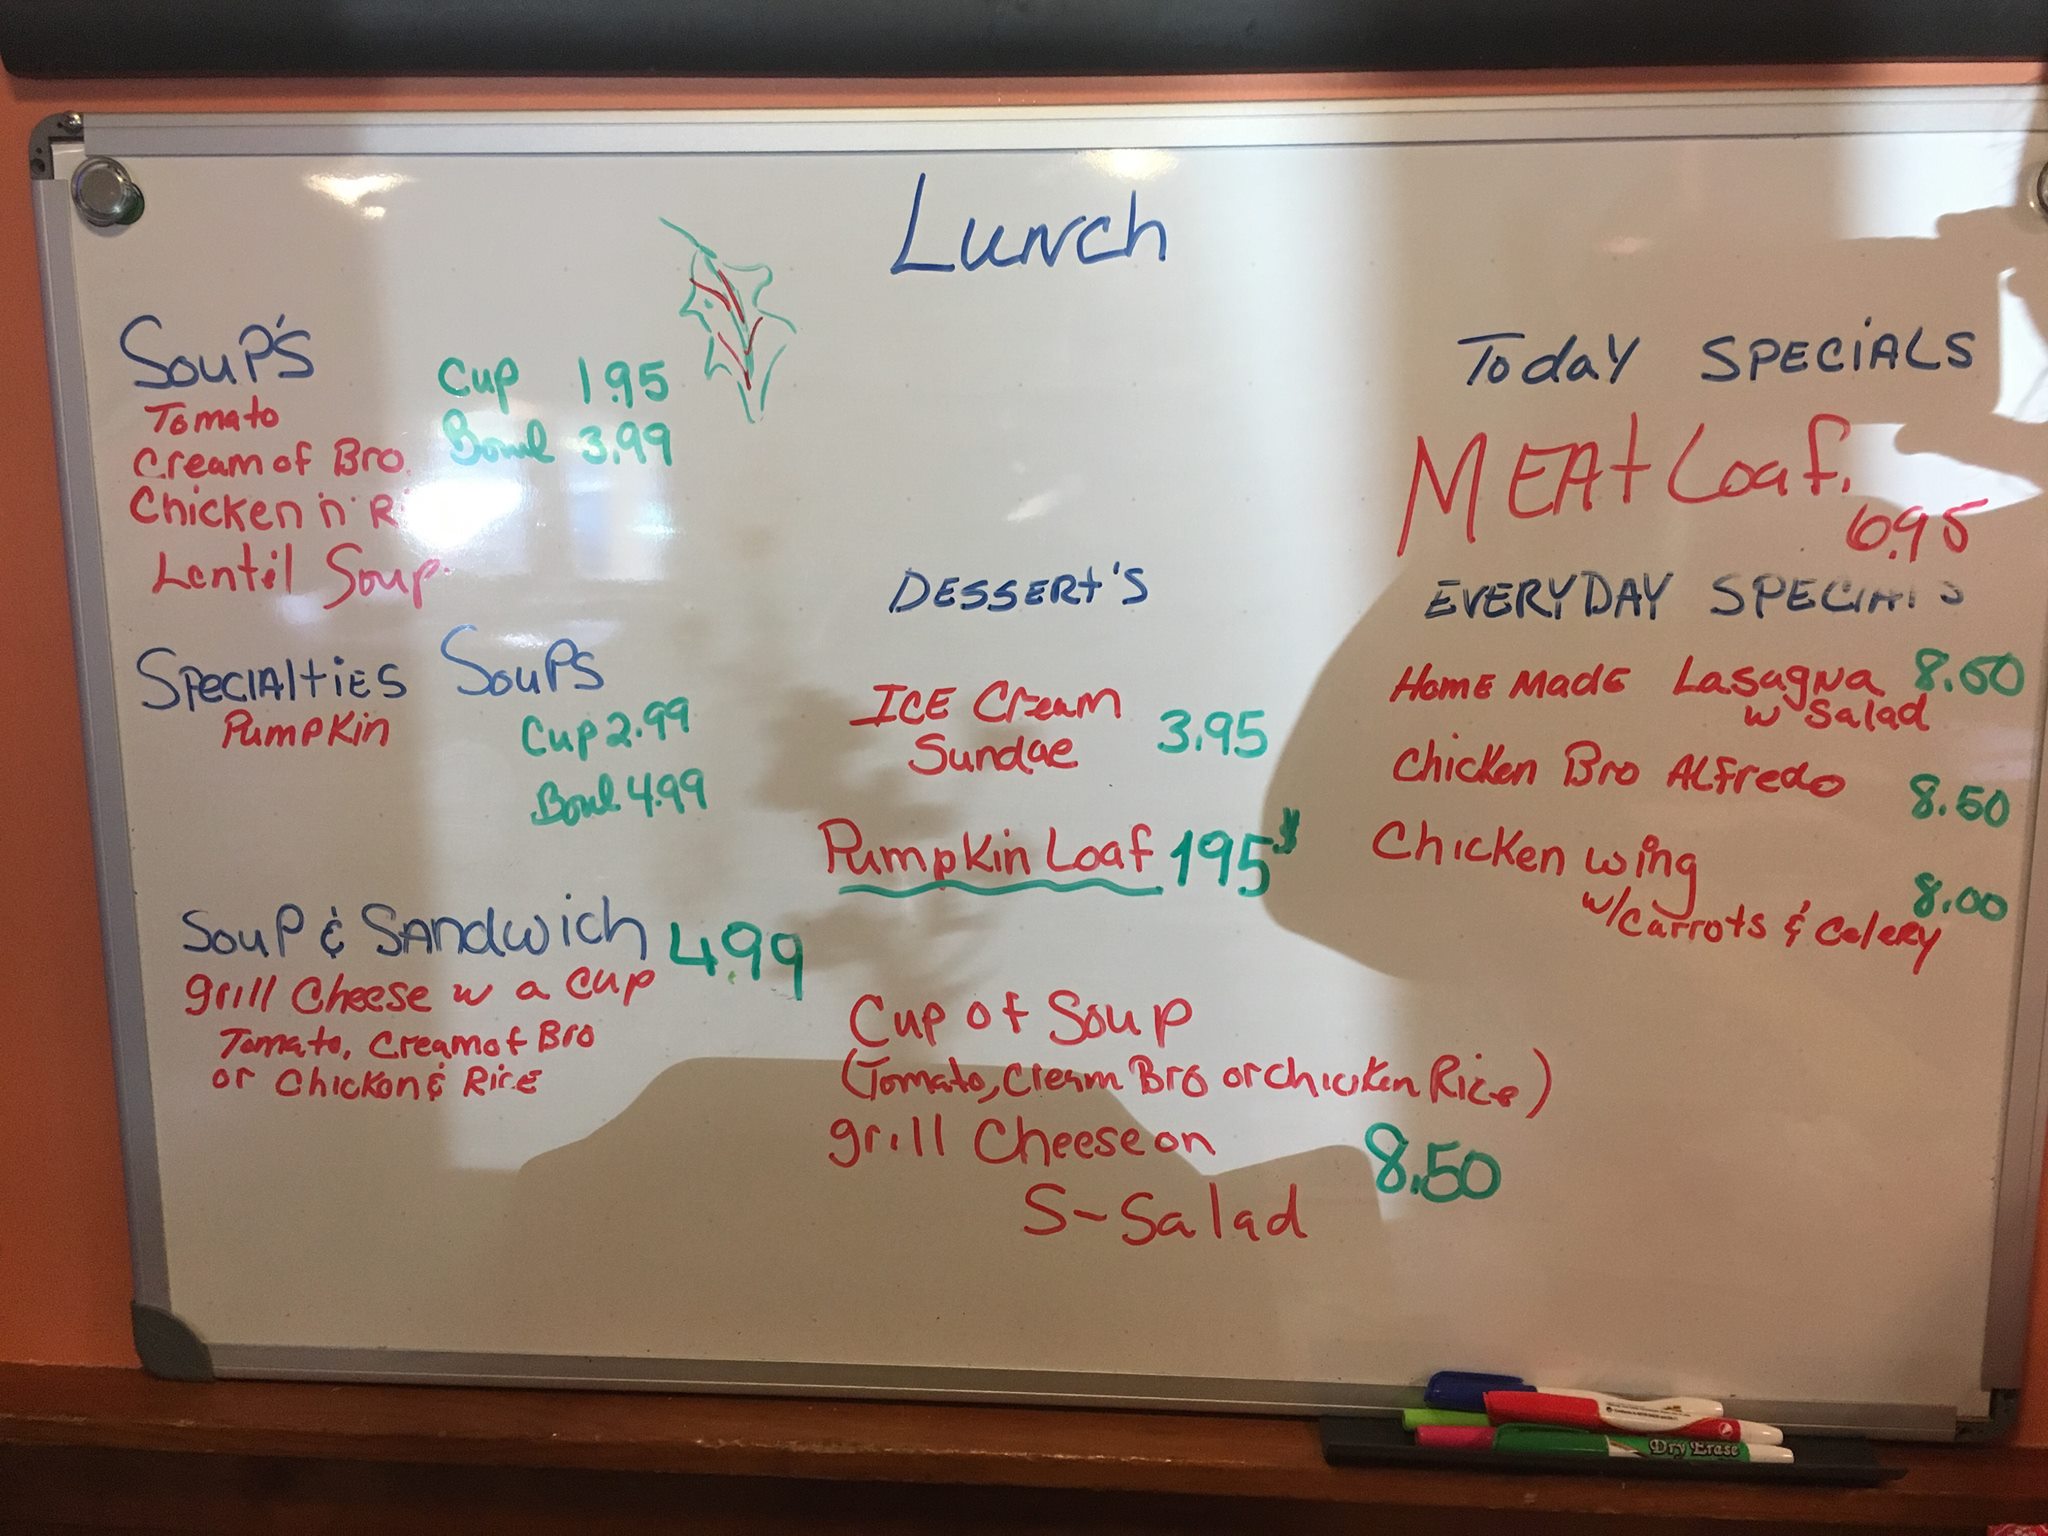 Lunch
Soup's
Cup 1.95
Tomato
Bowl 3.99
Cream of Bro.
Chicken 'n' Ri
Lentil Soup.
Specialties Soups
Pumpkin
Cup 2.99
Bowl 4.99
Soup & Sandwich 4.99
grill Cheese w a Cup
Tomato, Cream of Bro
or Chicken & Rice
Dessert's
ICE Cream
Sundae 3.95
Pumpkin Loaf 195 $
Cup of Soup
(Tomato, Cream Bro or chicken Rice)
grill Cheese on
8.50
S-Salad
Today SPECIALS
MEAt Loaf.
6.95
EVERYDAY SPECIALS
Home Made Lasagna
w Salad
Chicken Bro Alfredo
8.50
Chicken wing
8.00
w/Carrots & Celery
Dry Erase